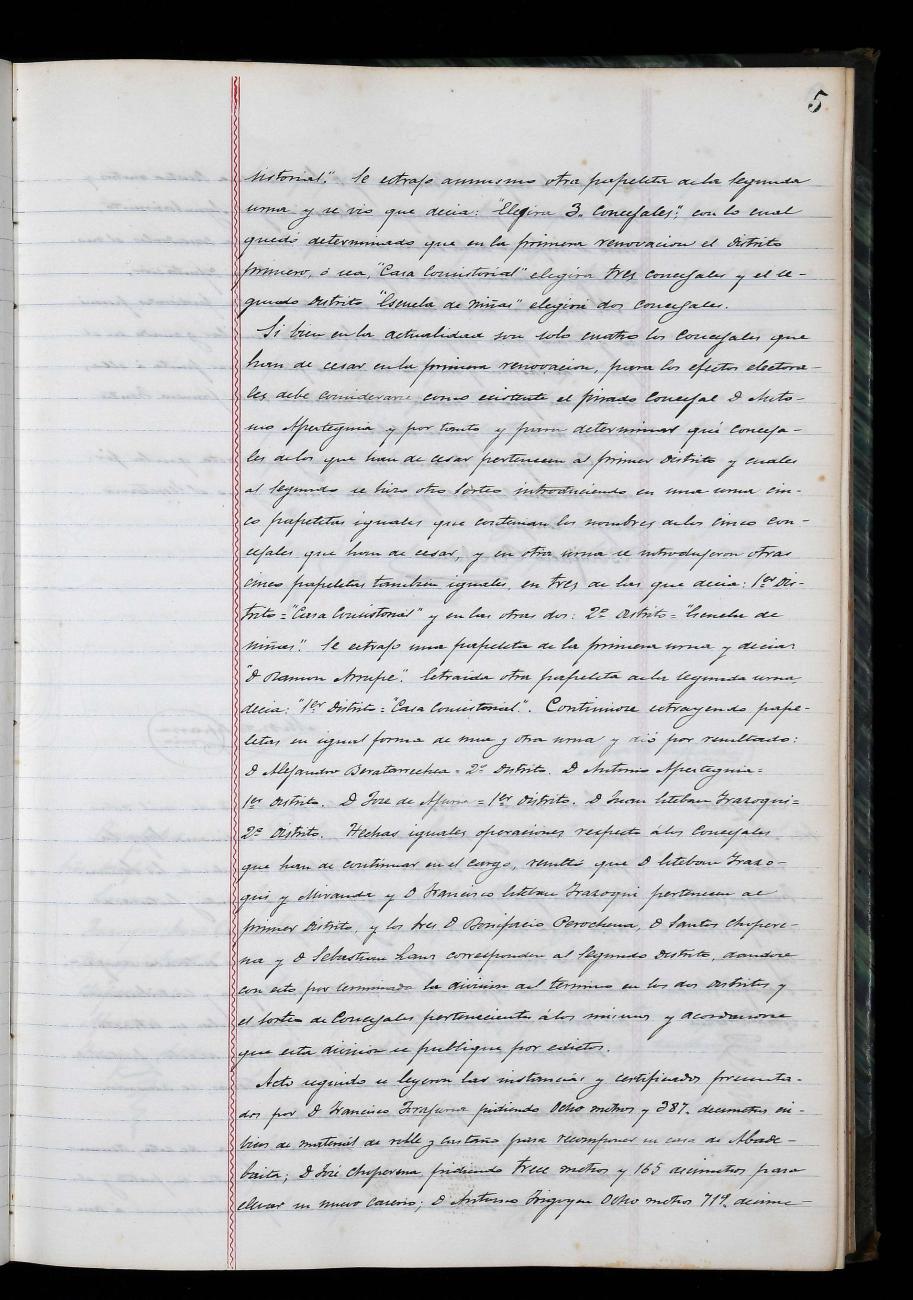 5
sistorial". Se estrajo asimismo otra papeleta de la segunda
urna y se vio que decia: "Elegira 3. Concejales": con lo cual
quedó determinado que en la primera renovacion el Distrito
primero, ó sea, "Casa Consistorial" elegira tres concejales y el se-
gundo Distrito "Escuela de niñas" elegira dos concejales.
Si bien en la actualidad son solo cuatro los Concejales que
han de cesar en la primera renovacion, para los efectos electora-
les debe considerarse como existente el finado Concejal D Anto-
nio Apesteguia y por tanto y para determinar qué conceja-
les de los que han de cesar pertenecen al primer Distrito y cuales
al segundo se hizo otro sorteo introduciendo en una urna cin-
co papeletas iguales que contenian los nombres de los cinco con-
cejales que han de cesar, y en otra urna se introdujeron otras
cinco papeletas tambien iguales, en tres de las que decia: 1er Dis-
trito = "Casa Consistorial" y en las otras dos: 2º Distrito = "Escuela de
niñas". Se estrajo una papeleta de la primera urna y decia:
"D Ramon Arrupe". Estraida otra papeleta de la segunda urna,
decia: "1er Distrito = "Casa Consistorial". Continuose estrayendo pape-
letas en igual forma de una y otra urna y dió por resultado:
D Alejandro Beratarrechea = 2º Distrito. D Antonio Apesteguia =
1er Distrito. D José de = 1er Distrito. D Juan Esteban Irazoqui =
2º Distrito. Hechas iguales operaciones respecto á los Concejales
que han de continuar en el cargo, resulta que D Esteban Irazo-
qui y Miranda y D Francisco Esteban Irazoqui pertenecen al
primer Distrito, y los tres D Bonifacio Perochena, D Santos Chipere-
na y D Sebastian Sanz corresponden al segundo Distrito, dandose
con esto por terminada la division del termino en los dos distritos y
el sorteo de Concejales pertenecientes á los mismos y acordandose
que esta division se publique por edictos.
Acto seguido se leyeron las instancias y certificados presenta-
dos por D Francisco pidiendo Ocho metros y 387. decimetros cú-
bicos de material de roble y castaño para recomponer su casa de
D José Chiperena, pidiendo trece metros y 165 decimetros para
elevar un nuevo caserio; D Antonio Irigoyen Ocho metros 719. decime-